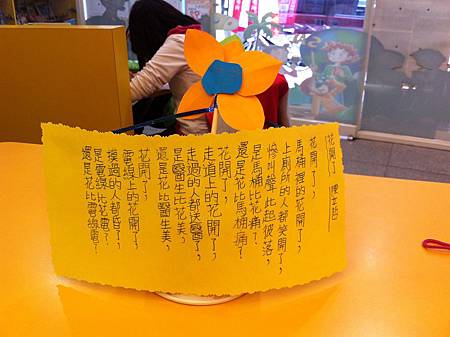 花開了 陳玉超
花開了，
馬桶裡的花開了，
上廁所的人都笑開了，
慘叫聲此起彼落，
是馬桶比花痛？
還是花比馬桶痛？
花開了，
走道上的花開了，
走過的人都送醫了，
是醫生比花美，
還是花比醫生美，
花開了，
電線上的花開了，
摸過的人都昏了，
是電線比花電？
還是花比電線電？